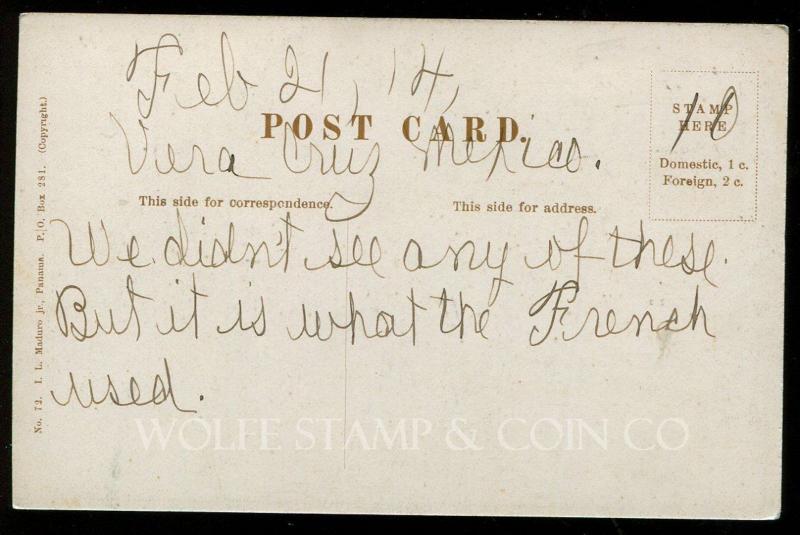 Feb 21, 14,
POST CARD.
Vera Cruz Mexico.
STAMP
HERE
10
Domestic, 1 c.
Foreign, 2 c.
This side for correspondence.
This side for address.
We didn't see any of these.
But it is what the French
used.
No. 72. I. L. Maduro jr., Panama. P. O. Box 281. (Copyright.)
WOLFE STAMP & COIN CO